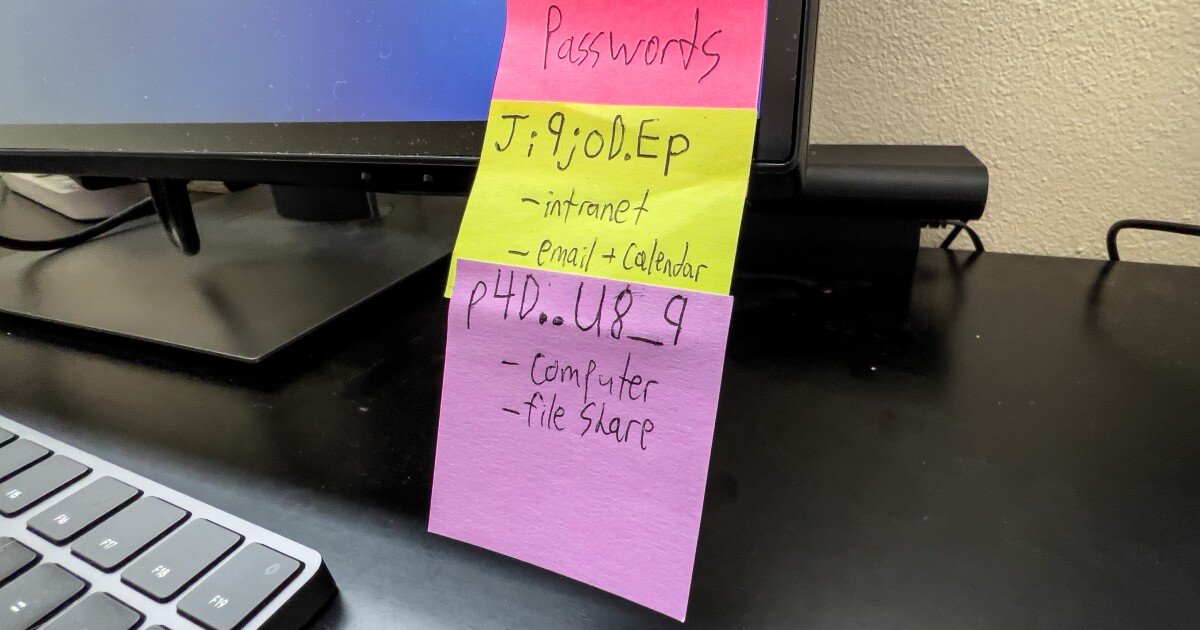 Passwords
Ji9joD.Ep
-intranet
- email + Calendar
p4D..U8_9
- Computer
-file Share
F15
F16
F17
F18
F19